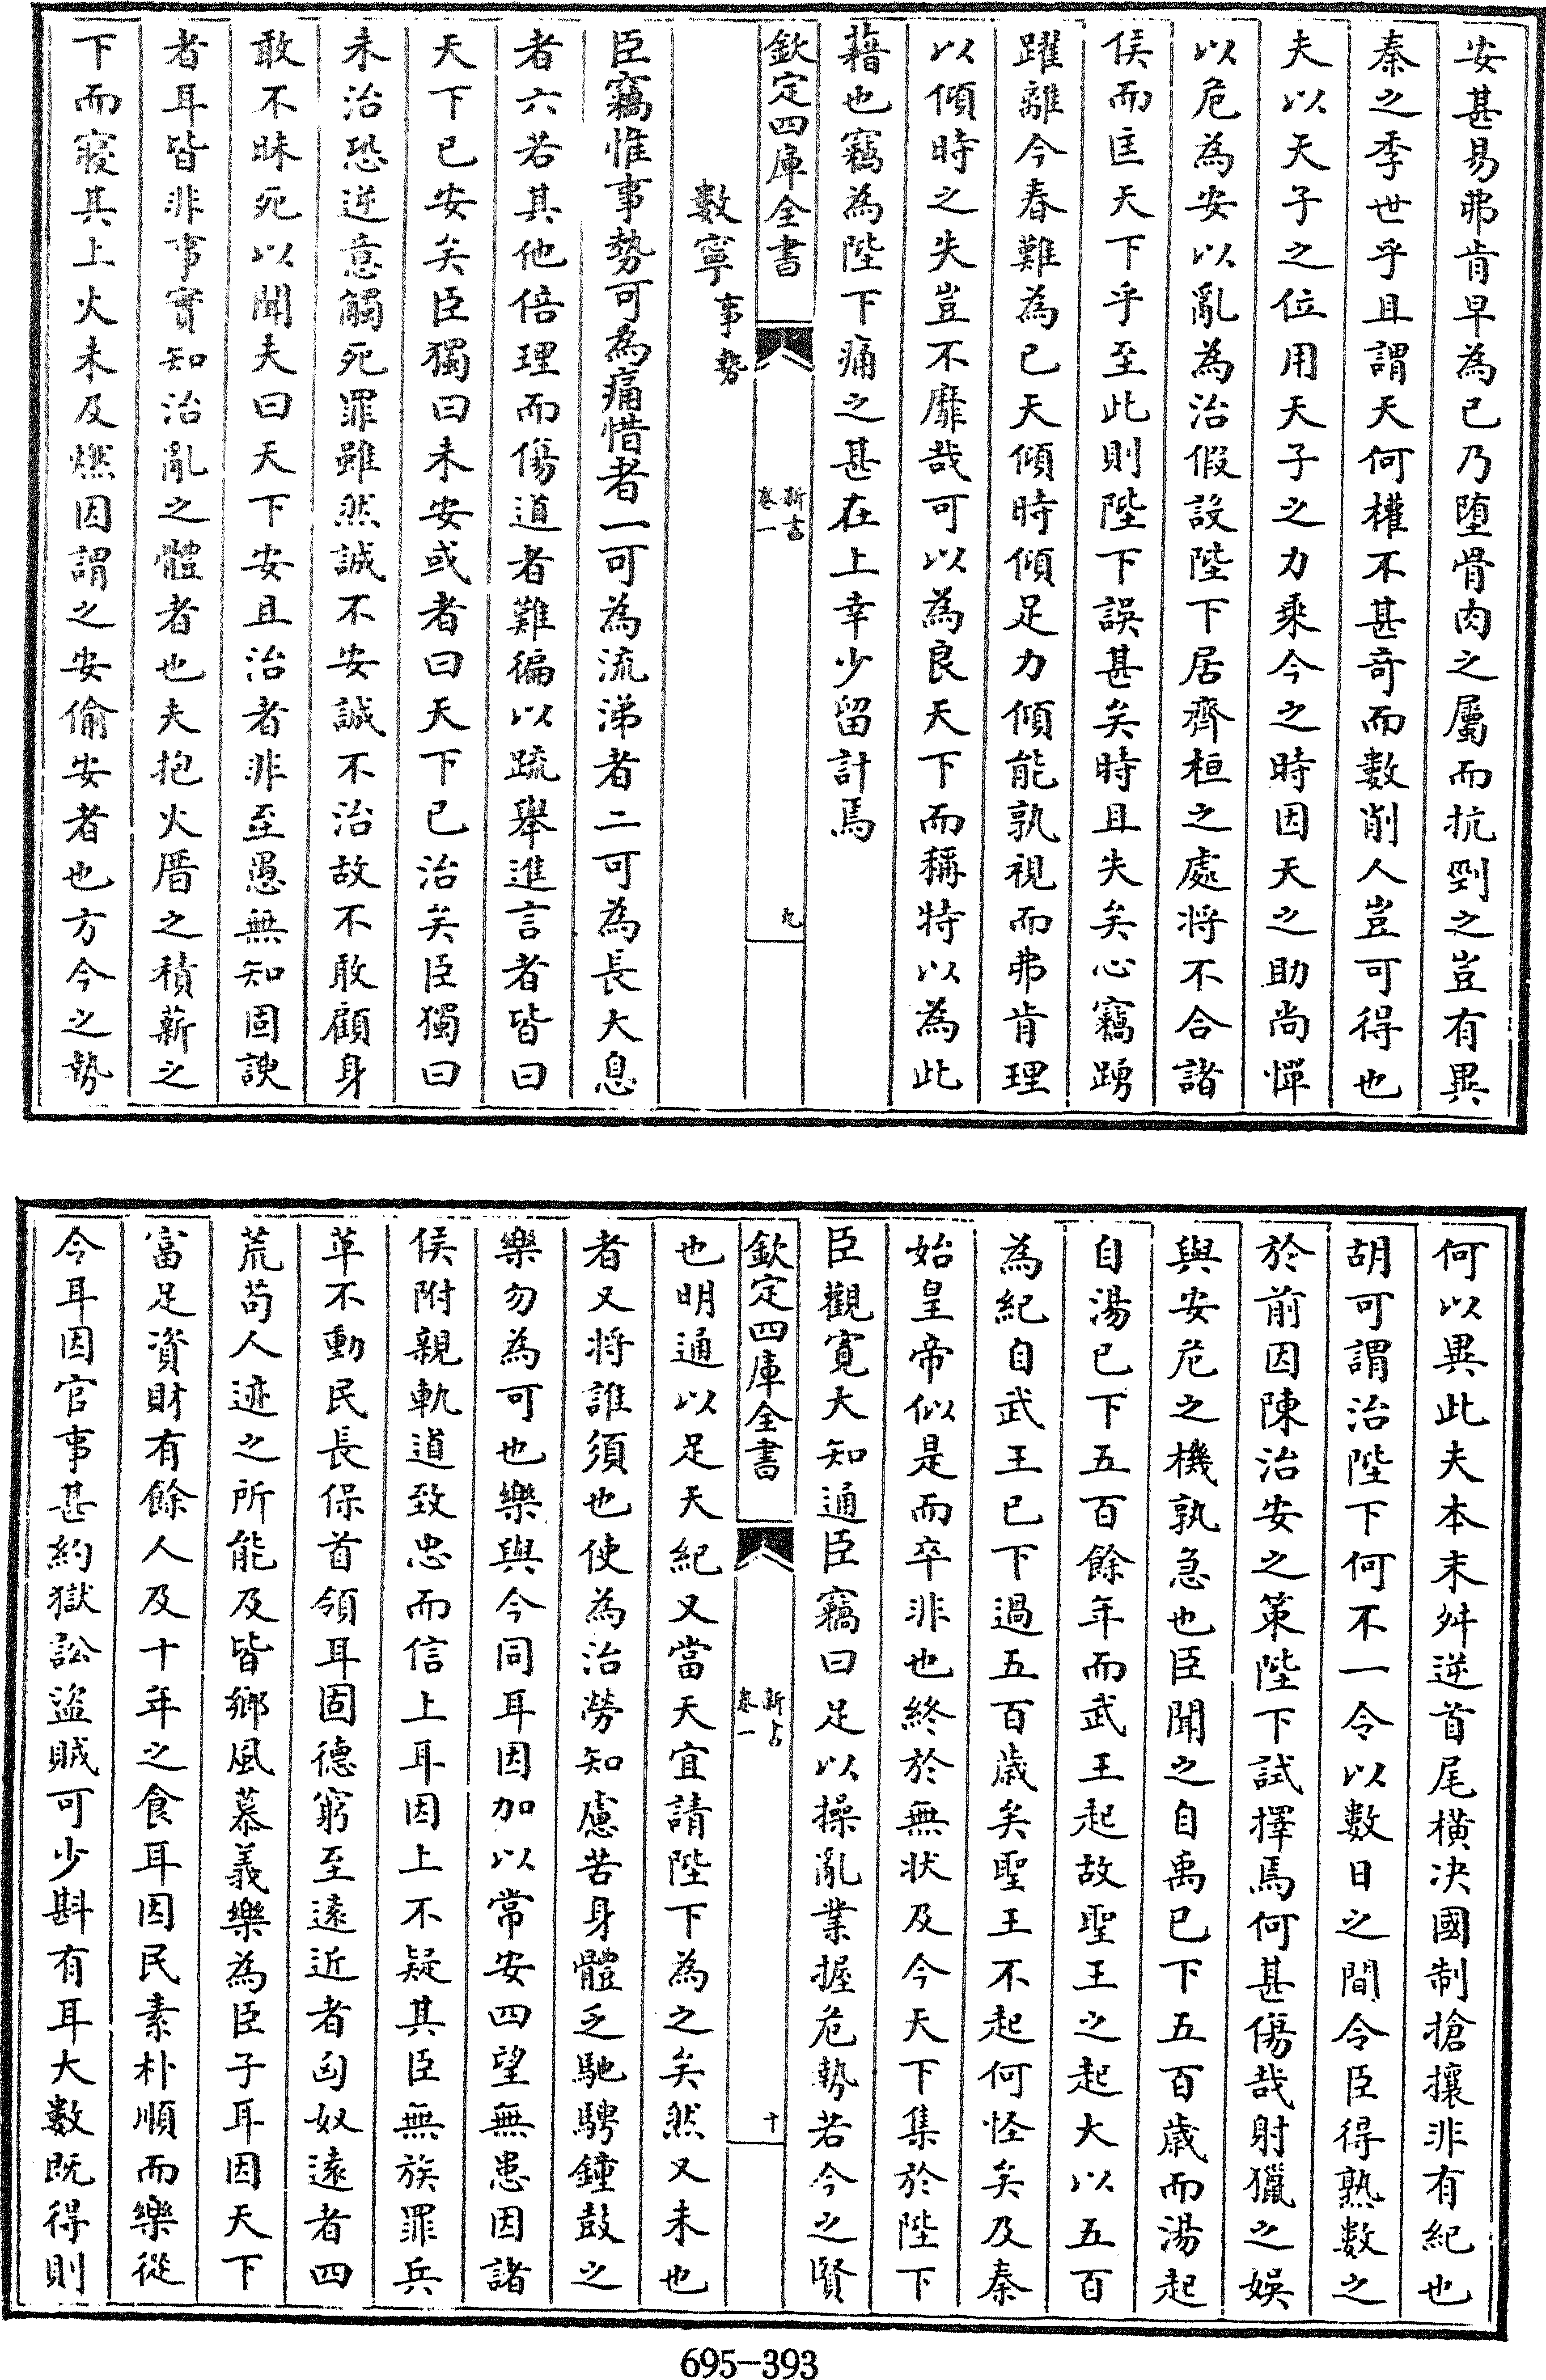 安甚易弗肯早為已乃堕骨肉之屬而抗剄之豈有異
秦之季世乎且謂天何權不甚奇而數削人豈可得也
夫以天子之位用天子之力乘今之時因天之助尚憚
以危為安以亂為治假設陛下居齊桓之處将不合諸
侯而匡天下乎至此則陛下誤甚矣時且失矣心竊踴
躍離今春難為已天傾時傾足力傾能孰視而弗肯理
以傾時之失豈不靡哉可以為良天下而稱特以為此
藉也竊為陛下痛之甚在上幸少留計焉
欽定四庫全書
新書
卷一
九
數寧事勢
臣竊惟事勢可為痛惜者一可為流涕者二可為長大息
者六若其他倍理而傷道者難徧以疏舉進言者皆曰
天下已安矣臣獨曰未安或者曰天下已治矣臣獨曰
未治恐逆意觸死罪雖然誠不安誠不治故不敢顧身
敢不昧死以聞夫曰天下安且治者非至愚無知固諛
者耳皆非事實知治亂之體者也夫抱火厝之積薪之
下而寢其上火未及燃因謂之安偷安者也方今之勢
何以異此夫本末舛逆首尾横决國制搶攘非有紀也
胡可謂治陛下何不一令以數日之間令臣得熟數之
於前因陳治安之策陛下試擇焉何甚傷哉射獵之娛
與安危之機孰急也臣聞之自禹已下五百歲而湯起
自湯已下五百餘年而武王起故聖王之起大以五百
為紀自武王已下過五百歲矣聖王不起何怪矣及秦
始皇帝似是而卒非也終於無状及今天下集於陛下
臣觀寛大知通臣竊曰足以操亂業握危勢若今之賢
欽定四庫全書
新書
卷一
十
也明通以足天紀又當天宜請陛下為之矣然又未也
者又将誰須也使為治勞知慮苦身體乏馳騁鐘鼓之
樂勿為可也樂與今同耳因加以常安四望無患因諸
侯附親軌道致忠而信上耳因上不疑其臣無族罪兵
革不動民長保首領耳固德窮至遠近者匈奴遠者四
荒苟人迹之所能及皆鄉風慕義樂為臣子耳因天下
富足資財有餘人及十年之食耳因民素朴順而樂從
今耳因官事甚約獄訟盜賊可少斟有耳大數既得則
695-393